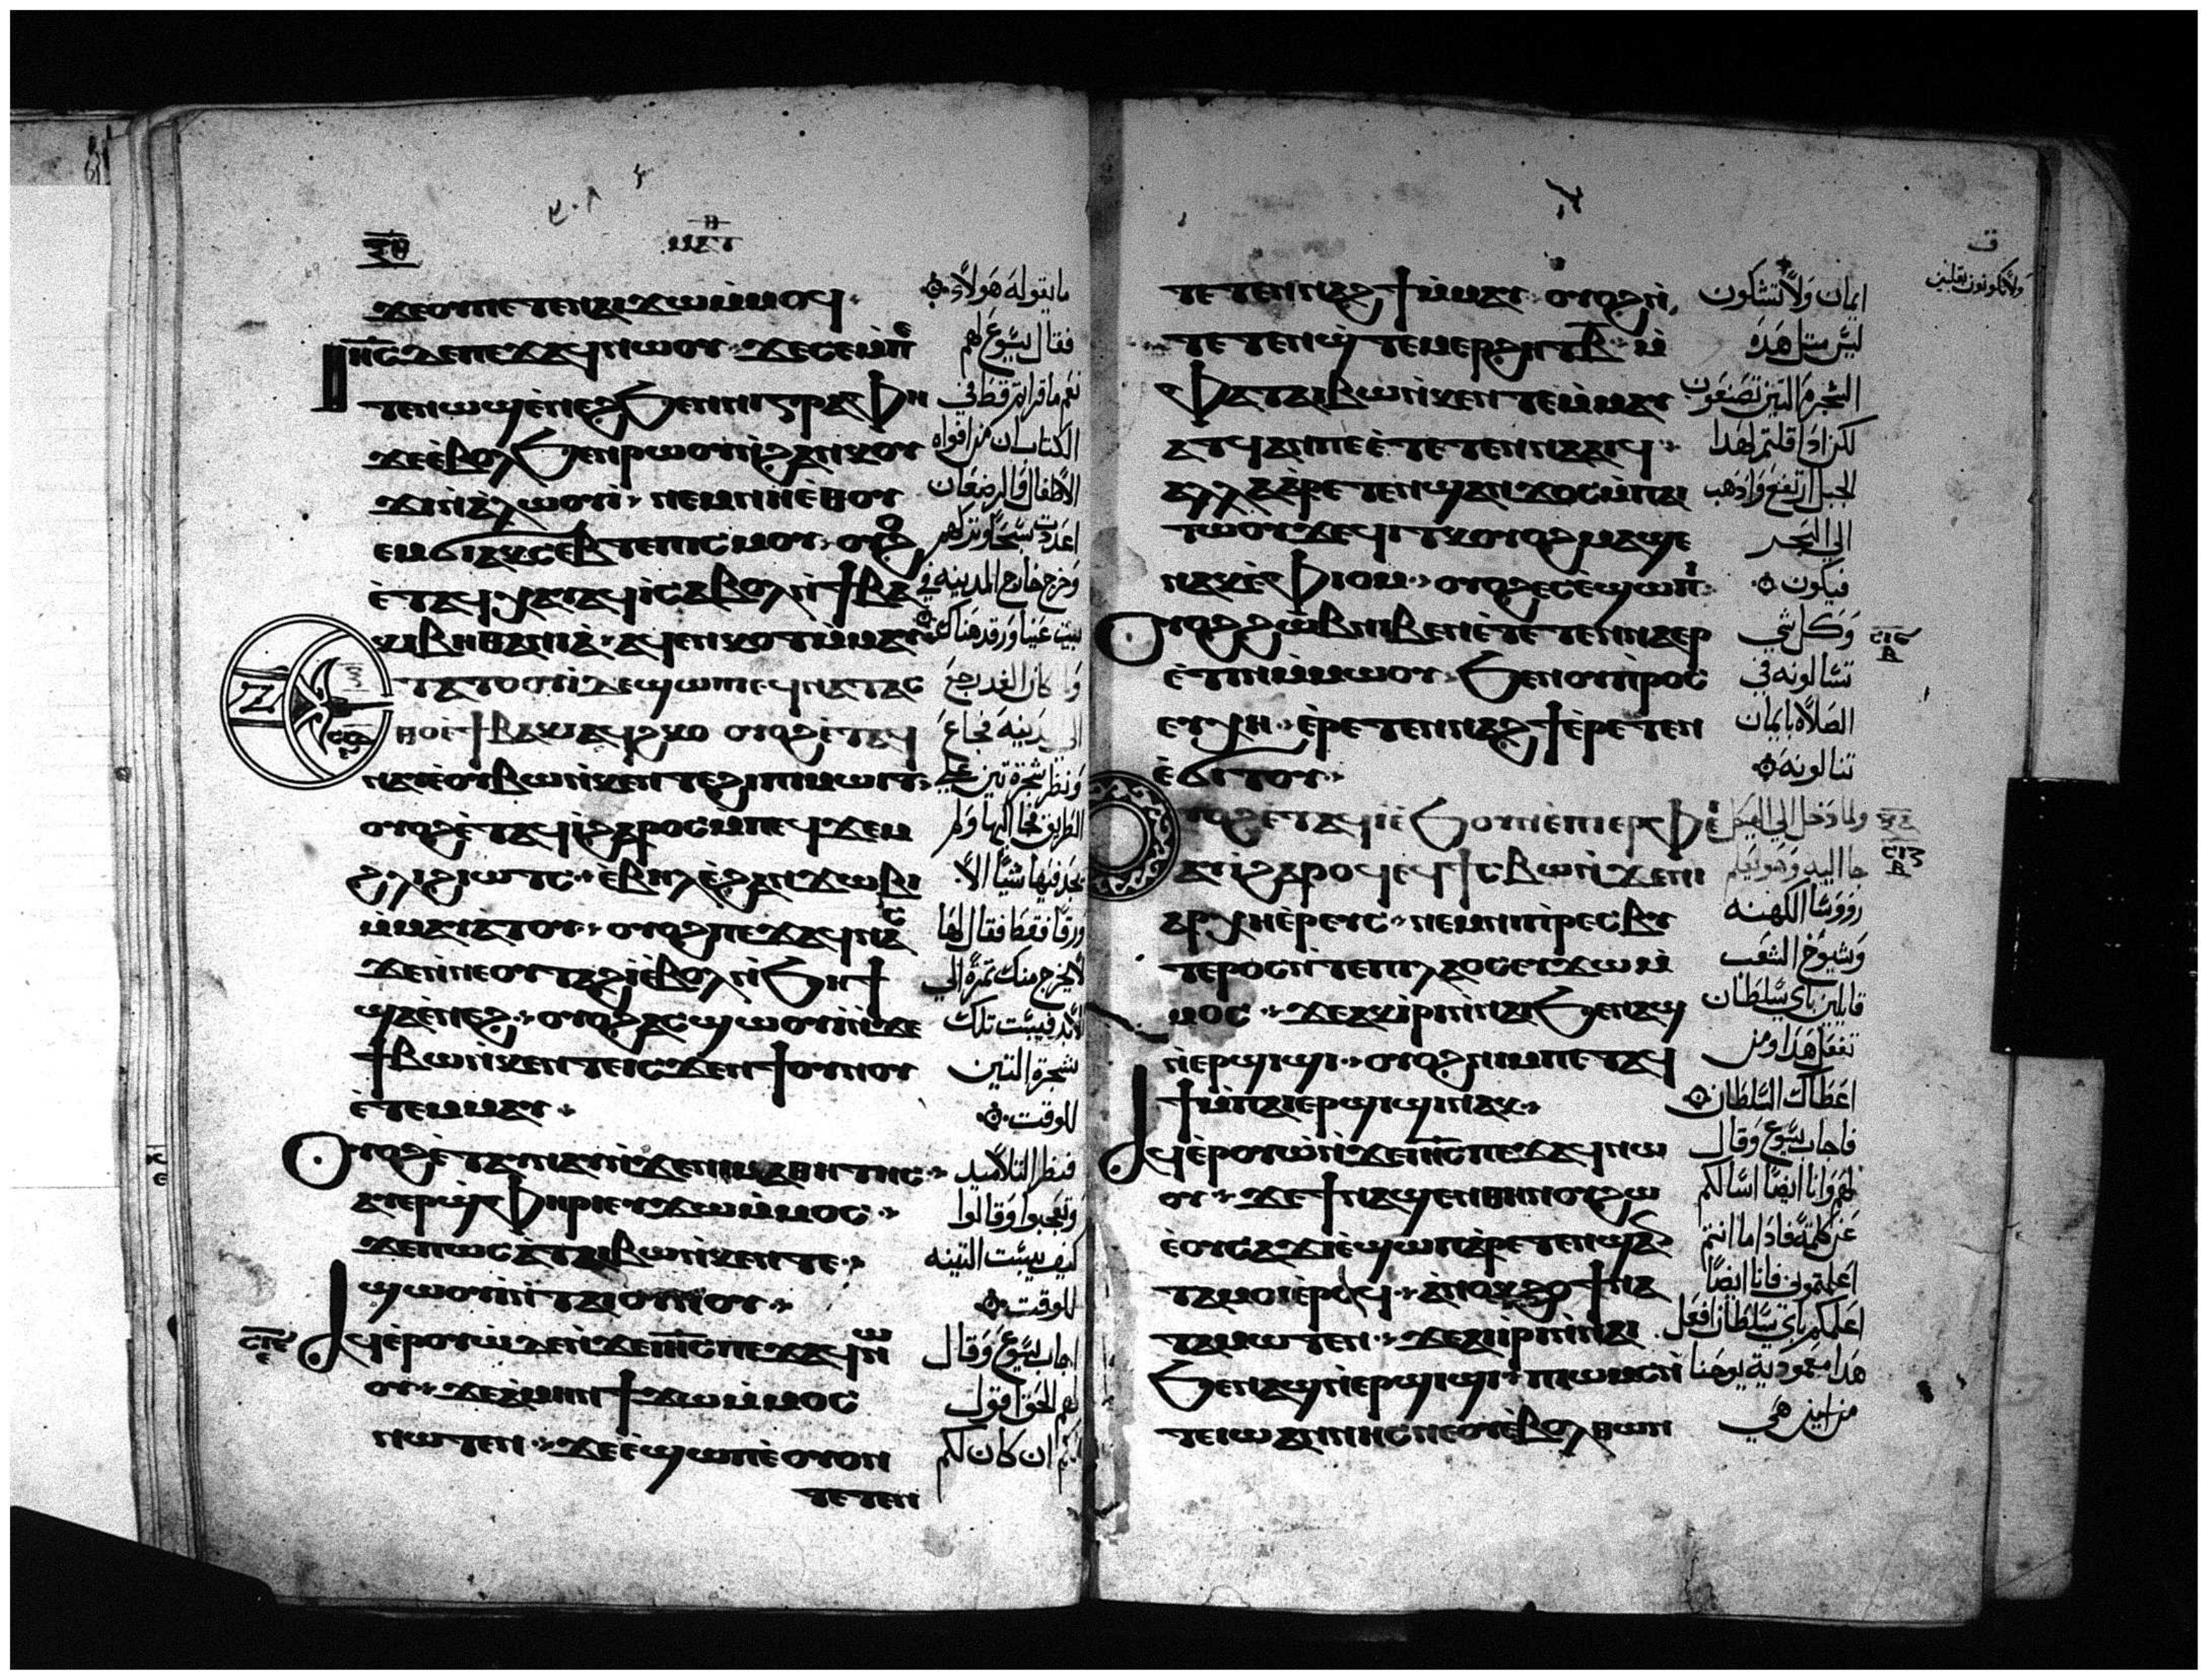 ⲝⲑ
ⲙⲁⲧ
ϫⲉⲟⲩⲡⲉⲧⲉⲛⲁⲓϫⲱⲙ̀ⲙⲟϥ
ⲓⲏ̅ⲥ̅ⲇⲉⲡⲉϫⲁϥⲛⲱⲟⲩ ϫⲉⲥⲉⲙ̀ⲡⲉ
ⲧⲉⲛⲱϣⲉ̀ⲛⲉϩϧⲉⲛⲛⲓⲅⲣⲁⲫⲏ
ϫⲉⲉ̀ⲃⲟⲗϧⲉⲛⲣⲱⲟⲩⲛ̀ϩⲁⲛⲕⲟⲩ
ϫⲓⲛ̀ⲁ̀ⲗⲱⲟⲩⲓ̀ ⲛⲉⲙⲛⲏⲉ̀ⲑⲟⲩ
ⲉⲙϭⲓⲁⲕⲥⲉⲃⲧⲉⲡⲓⲥⲙⲟⲩ ⲟⲩⲟϩ
ⲉ̀ⲧⲁϥⲭⲁⲩⲁϥⲓ̀ⲥⲁⲃⲟⲗⲛ̀ϯⲃⲁ
ⲕⲓⲃⲏⲑⲁⲛⲓⲁ̀ ⲁϥⲉⲛⲕⲟⲧⲙ̀ⲙⲁⲩ
ⲉⲧⲁⲧⲟⲟⲩⲓ̀ⲇⲉϣⲱⲡⲓⲉϥⲛⲁⲧⲁⲥ
ⲑⲟⲉ̀ϯⲃⲁⲕⲓⲁϥϩⲕⲟ ⲟⲩⲟϩⲉ̀ⲧⲁϥ
ⲛⲁⲩⲉ̀ⲟⲩⲃⲱⲛ̀ⲕⲉⲛⲧⲉϩⲓⲡⲓⲙⲱⲓⲧ
ⲟⲩⲟϩⲉ̀ⲧⲁϥⲓ̀ϩⲁⲣⲟⲥⲙ̀ⲡⲉϥϫⲉⲙ
ϩⲗⲓϩⲓⲱⲧⲥ ⲉⲃⲏⲗⲉ̀ϩⲁⲛϫⲱⲃⲓ
ⲙ̀ⲙⲁⲩⲁⲧⲟⲩ ⲟⲩⲟϩⲡⲉϫⲁϥⲛⲁⲥ
ϫⲉⲛ̀ⲛⲉⲟⲩⲧⲁϩⲓ̀ⲉ̀ⲃⲟⲗⲛ̀ϧⲏϯ
ϣⲁⲉ̀ⲛⲉϩ ⲟⲩⲟϩⲁⲥϣⲱⲟⲩⲓ̀ⲛ̀ϫⲉ
ϯⲃⲱⲛ̀ⲕⲉⲛⲧⲉⲓⲥϫⲉⲛϯⲟⲩⲛⲟⲩ
ⲉ̀ⲧⲉⲙⲙⲁⲩ
ⲟⲩⲟϩⲉ̀ⲧⲁⲩⲛⲁⲩⲛ̀ϫⲉⲛⲓⲙⲁⲑⲏⲧⲏⲥ
ⲁⲩⲉⲣϣ̀ⲫⲏⲣⲓⲉⲩϫⲱⲙ̀ⲙⲟⲥ
ϫⲉⲡⲱⲥⲁ̀ⲧⲁⲓⲃⲱⲛ̀ⲕⲉⲛⲧⲉ
ϣⲱⲟⲩⲓ̀ⲛ̀ⲧⲁⲓⲟⲩⲛⲟⲩ
ⲥⲓⲉ
ⲁϥⲉⲣⲟⲩⲱ̀ⲇⲉⲛ̀ϫⲉⲓⲏ̅ⲥ̅ⲡⲉϫⲁϥⲛⲱ
ⲟⲩ ϫⲉⲁ̀ⲙⲏⲛϯϫⲱⲙ̀ⲙⲟⲥ
ⲛⲱⲧⲉⲛ ϫⲉⲉ̀ϣⲱⲡⲉ̀ⲟⲩⲟⲛ
ⲧⲉⲧⲉⲛ
ما يقوله هولاء
فقال يسوع لهم
نعم ما قراتم قط في
الكتاب ان من افواه
الاطفال والرضعان
اعددت سبحا وتركهم
وخرج خارج المدينه في
بيت عنيا ورقد هناك
ولما كان الغد رجع
الى المدينه فجاع
ونظر شجرة تين على
الطريق فجا اليها ولم
يجد فيها شيا الا
ورقا فقط فقال لها
لا يخرج منك ثمرة الي
الابد فيبست تلك
شجرة التين
للوقت
فنظر التلاميد
وتعجبوا وقالوا
كيف يبست التينه
للوقت
اجاب يسوع وقال
لهم الحق اقول
لكم ان كان لكم
ⲧⲉⲧⲉⲛⲛⲁϩϯⲙ̀ⲙⲁⲩ ⲟⲩⲟϩⲛ̀
ⲧⲉⲧⲉⲛϣ̀ⲧⲉⲙⲉⲣϩⲏⲧⲃ̅ ⲙ̀
ⲫⲁⲧⲁⲓⲃⲱⲛ̀ⲕⲉⲛⲧⲉⲙ̀ⲙⲁⲩ
ⲁⲧϥⲁⲛⲡⲉⲉ̀ⲧⲉⲧⲉⲛⲛⲁⲁⲓϥ
ⲁⲗⲗⲁⲁ̀ⲣⲉⲧⲉⲛϣⲁⲛϫⲟⲥⲙ̀ⲡⲁⲓ
ⲧⲱⲟⲩϫⲉϥⲓⲧⲕⲟⲩⲟϩⲙⲁϣⲉ
ⲛⲁⲕⲉ̀ⲫⲓⲟⲙ ⲟⲩⲟϩⲉⲥⲉ̀ϣⲱⲡⲓ
ⲟⲩⲟϩϩⲱⲃⲛⲓⲃⲉⲛⲉ̀ⲧⲉⲧⲉⲛⲛⲁⲉⲣ
ⲉ̀ⲧⲓⲛⲙ̀ⲙⲱⲟⲩ ϧⲉⲛⲟⲩⲡ̀ⲣⲟⲥ
ⲉⲩⲭⲏ ⲉ̀ⲣⲉⲧⲉⲛⲛⲁϩϯⲉ̀ⲣⲉⲧⲉⲛ
ⲉ̀ϭⲓⲧⲟⲩ
ⲟⲩⲟϩⲉ̀ⲧⲁϥⲓ̀ⲉ̀ϧⲟⲩⲛⲉ̀ⲡⲓⲉⲣⲫⲉⲓ
ⲁⲩⲓ̀ϩⲁⲣⲟϥⲉϥϯⲥⲃⲱⲛ̀ϫⲉⲛⲓ
ⲁⲣⲭⲏⲉ̀ⲣⲉⲩⲥ ⲛⲉⲙⲛⲓⲡ̀ⲣⲉⲥⲃⲩ
ⲧⲉⲣⲟⲥⲛ̀ⲧⲉⲡⲓⲗⲁⲟⲥⲉⲩϫⲱⲙ̀
ⲙⲟⲥ ϫⲉⲁⲕⲓ̀ⲣⲓⲛ̀ⲛⲁⲓϧⲉⲛⲁϣ
ⲛ̀ⲉⲣϣⲓϣⲓ ⲟⲩⲟϩⲛⲓⲙⲡⲉⲧⲁϥ
ϯⲙ̀ⲡⲁⲓⲉⲣϣⲓϣⲓⲛⲁⲕ
ⲁϥⲉ̀ⲣⲟⲩⲱ̀ⲛ̀ϫⲉⲓⲏ̅ⲥ̅ⲡⲉϫⲁϥⲛⲱ
ⲟⲩ ϫⲉϯⲛⲁϣⲉⲛⲑⲏⲛⲟⲩϩⲱ
ⲉ̀ⲟⲩⲥⲁϫⲓⲉ̀ϣⲱⲡⲁ̀ⲣⲉⲧⲉⲛϣⲁⲛ
ⲧⲁⲙⲟⲓⲉ̀ⲣⲟϥ ⲁⲛⲟⲕϩⲱϯⲛⲁ
ⲧⲁⲙⲱⲧⲉⲛ ϫⲉⲁⲓⲓ̀ⲣⲓⲛ̀ⲛⲁⲓ
ϧⲉⲛⲁϣⲛ̀ⲉⲣϣⲓϣⲓ ⲡⲓⲱⲙⲥⲛ̀
ⲧⲉⲓⲱⲁⲛⲛⲏⲥⲛⲉⲟⲩⲉ̀ⲃⲟⲗⲑⲱⲛ
ايمان ولا تشكون
ليس مثل هذه
الشجرة التين تصنعون
لكن اذا قلتم لهدا
الجبل ارتفع واذهب
الي البحر
فيكون
وكل شي
تسالونه في
الصلاه بايمان
تنالونه
ولما دخل الي الهيكل
جا اليه وهو يعلم
رووسا الكهنه
وشيوخ الشعب
قايلين باي سلطان
تفعل هدا ومن
اعطاك السلطان
فاجاب يسوع وقال
لهم وانا ايضا اسالكم
عن كلمة فاذا ما انتم
اعلمتموني فانا ايضا
اعلمكم باي سلطان افعل
هدا معمودية يوحنا
من اين هي
ⲥⲓⲋ
ⲃ
ⲥⲓⲍ
ⲃ